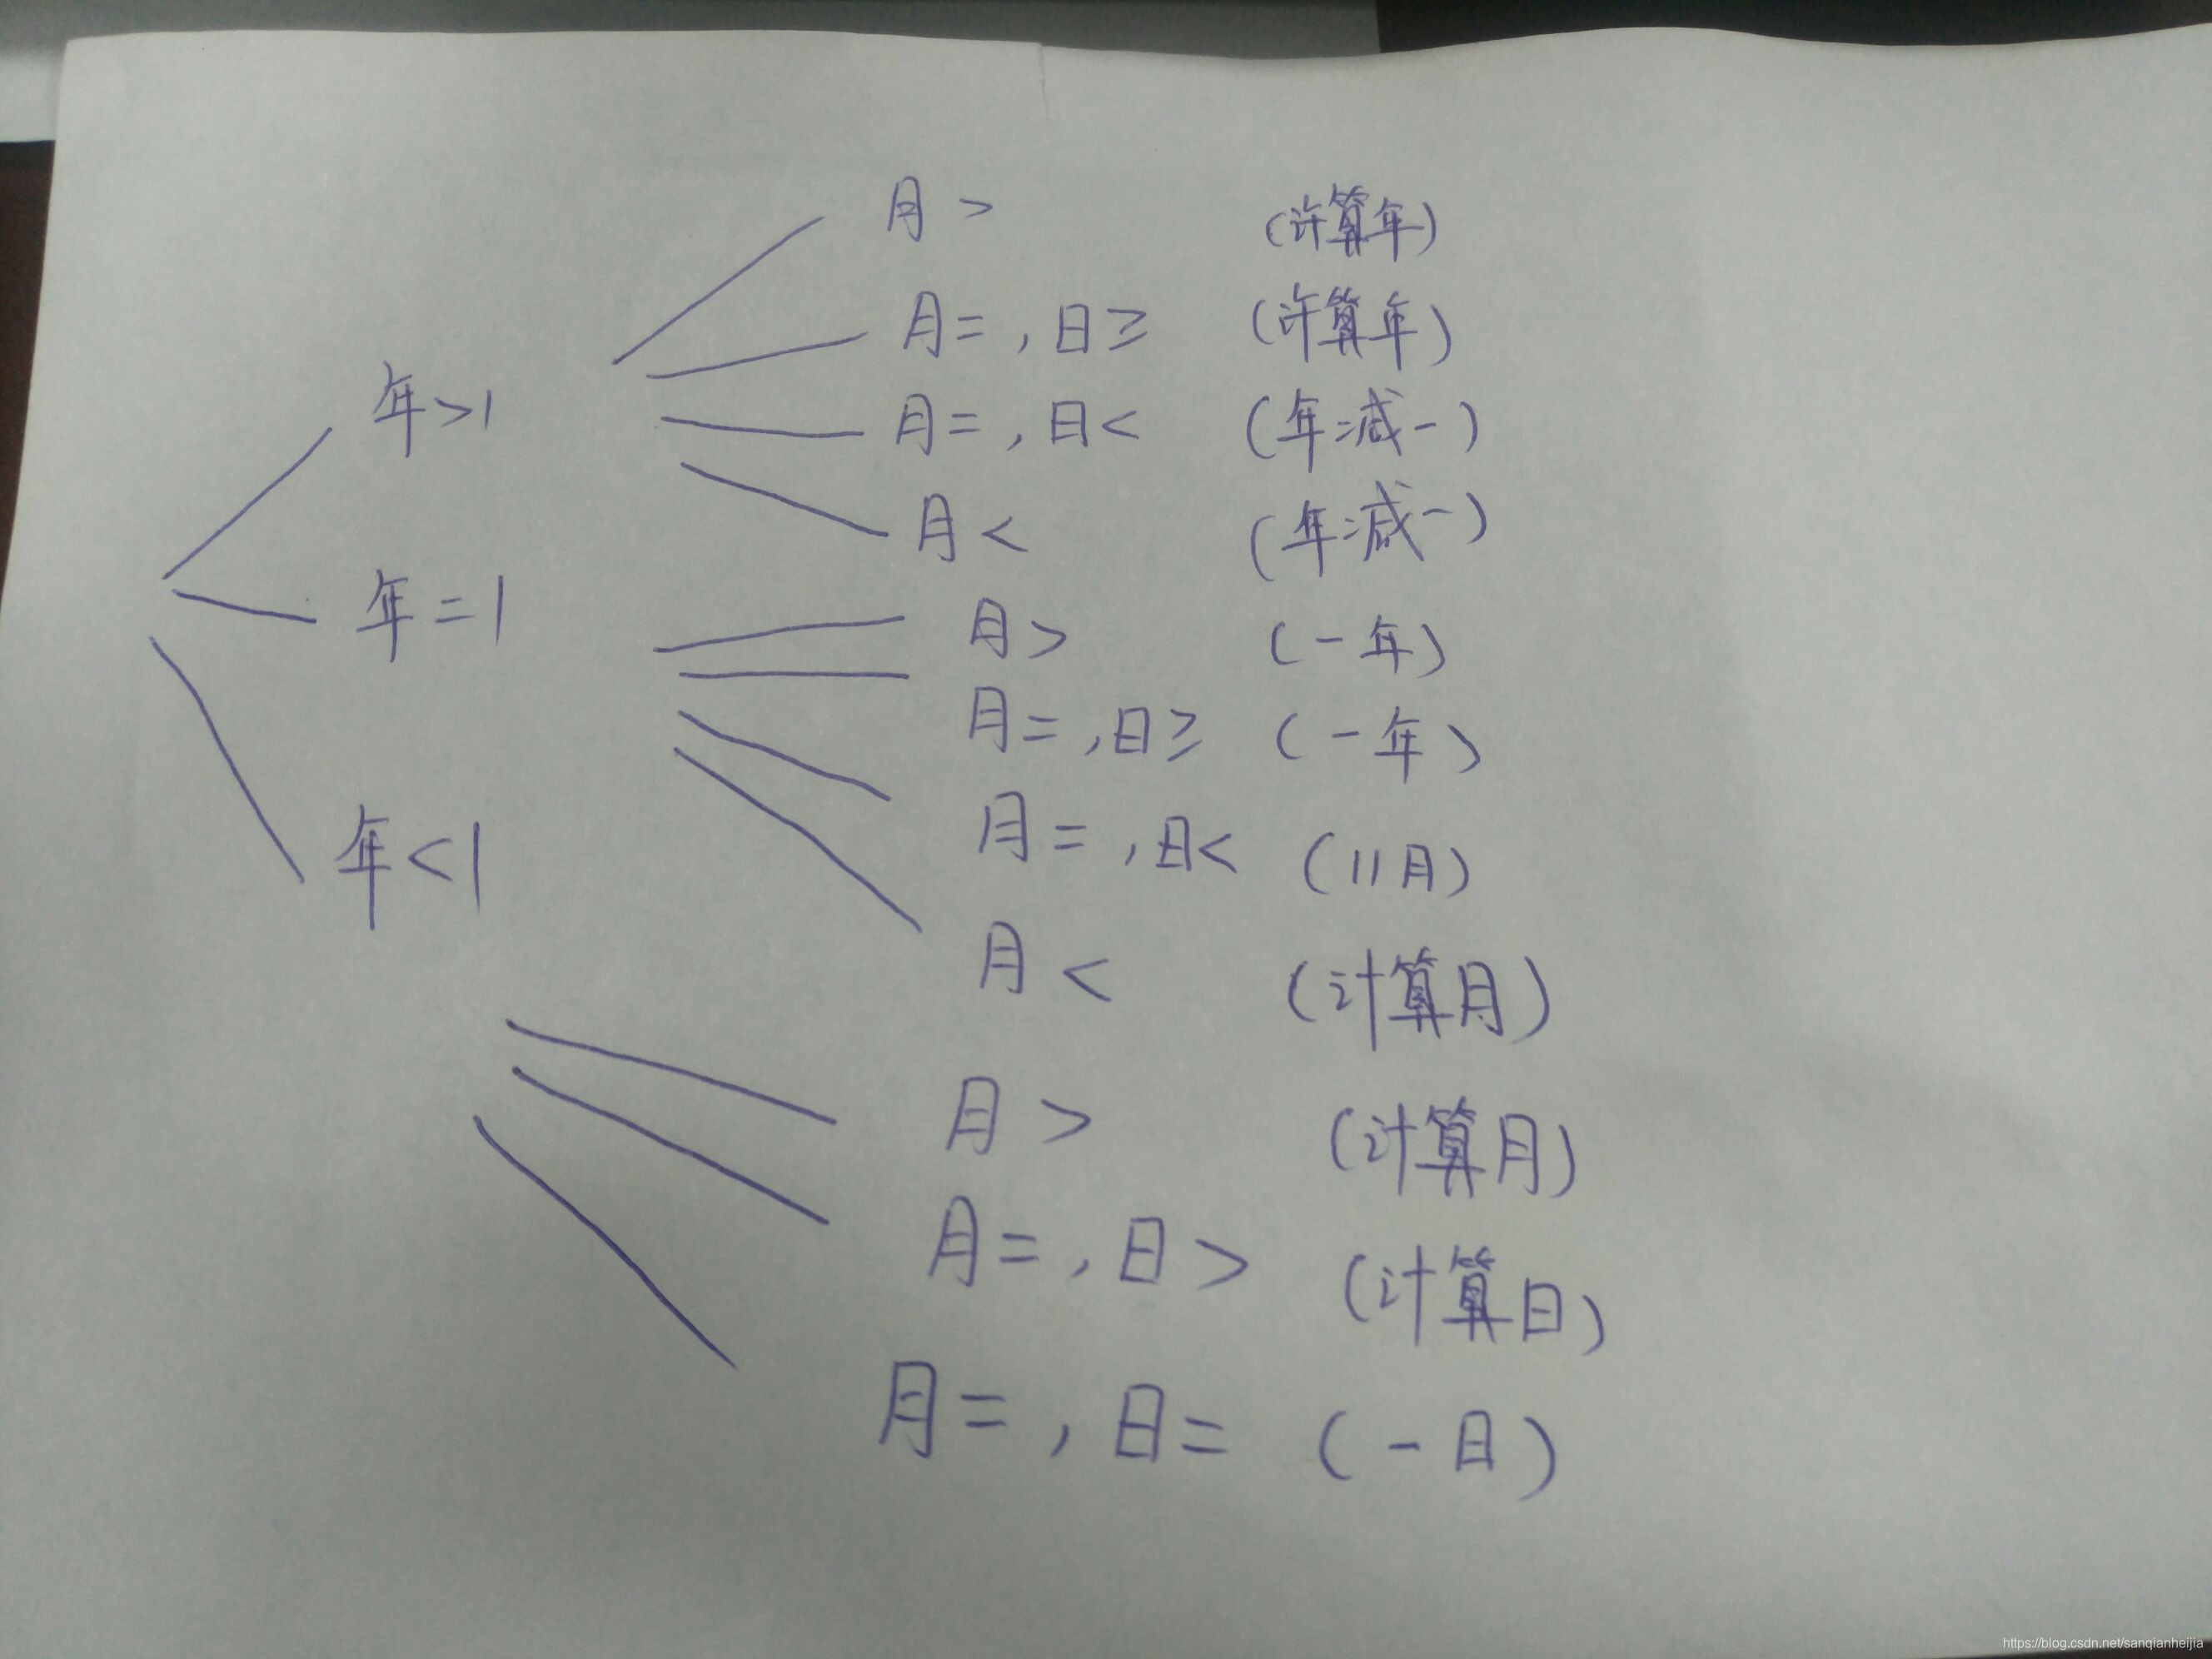 月> (计算年)
月=,日≥ (计算年)
年>1
月=,日< (年减一)
月< (年减一)
年=1
月> (一年)
月=,日≥ (一年)
年<1
月=,日< (11月)
月< (计算月)
月> (计算月)
月=,日> (计算日)
月=,日= (一日)
https://blog.csdn.net/sanqianheijia